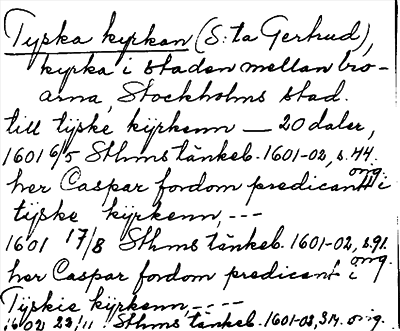 Tyska kyrkan (S:ta Gertrud),
kyrka i staden mellan bro-
arna, Stockholms stad.
till tijske kijrkenn — 20 daler,
1601 6/5 Sthms tänkeb. 1601-02, s. 44.
orig.
her Caspar fordom predicant i
tijske kijrkenn, ---
1601 17/8 Sthms tänkeb. 1601-02, s. 91.
orig.
her Caspar fordom predicant i
Tijskie kijrkenn, ----
1602 22/11 Sthms tänkeb. 1601-02, 314. orig.